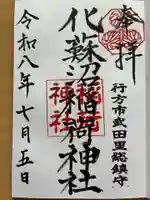 奉拝
行方市武田里総鎮守
化蘇沼稲荷神社
稲荷神社
令和八年七月五日